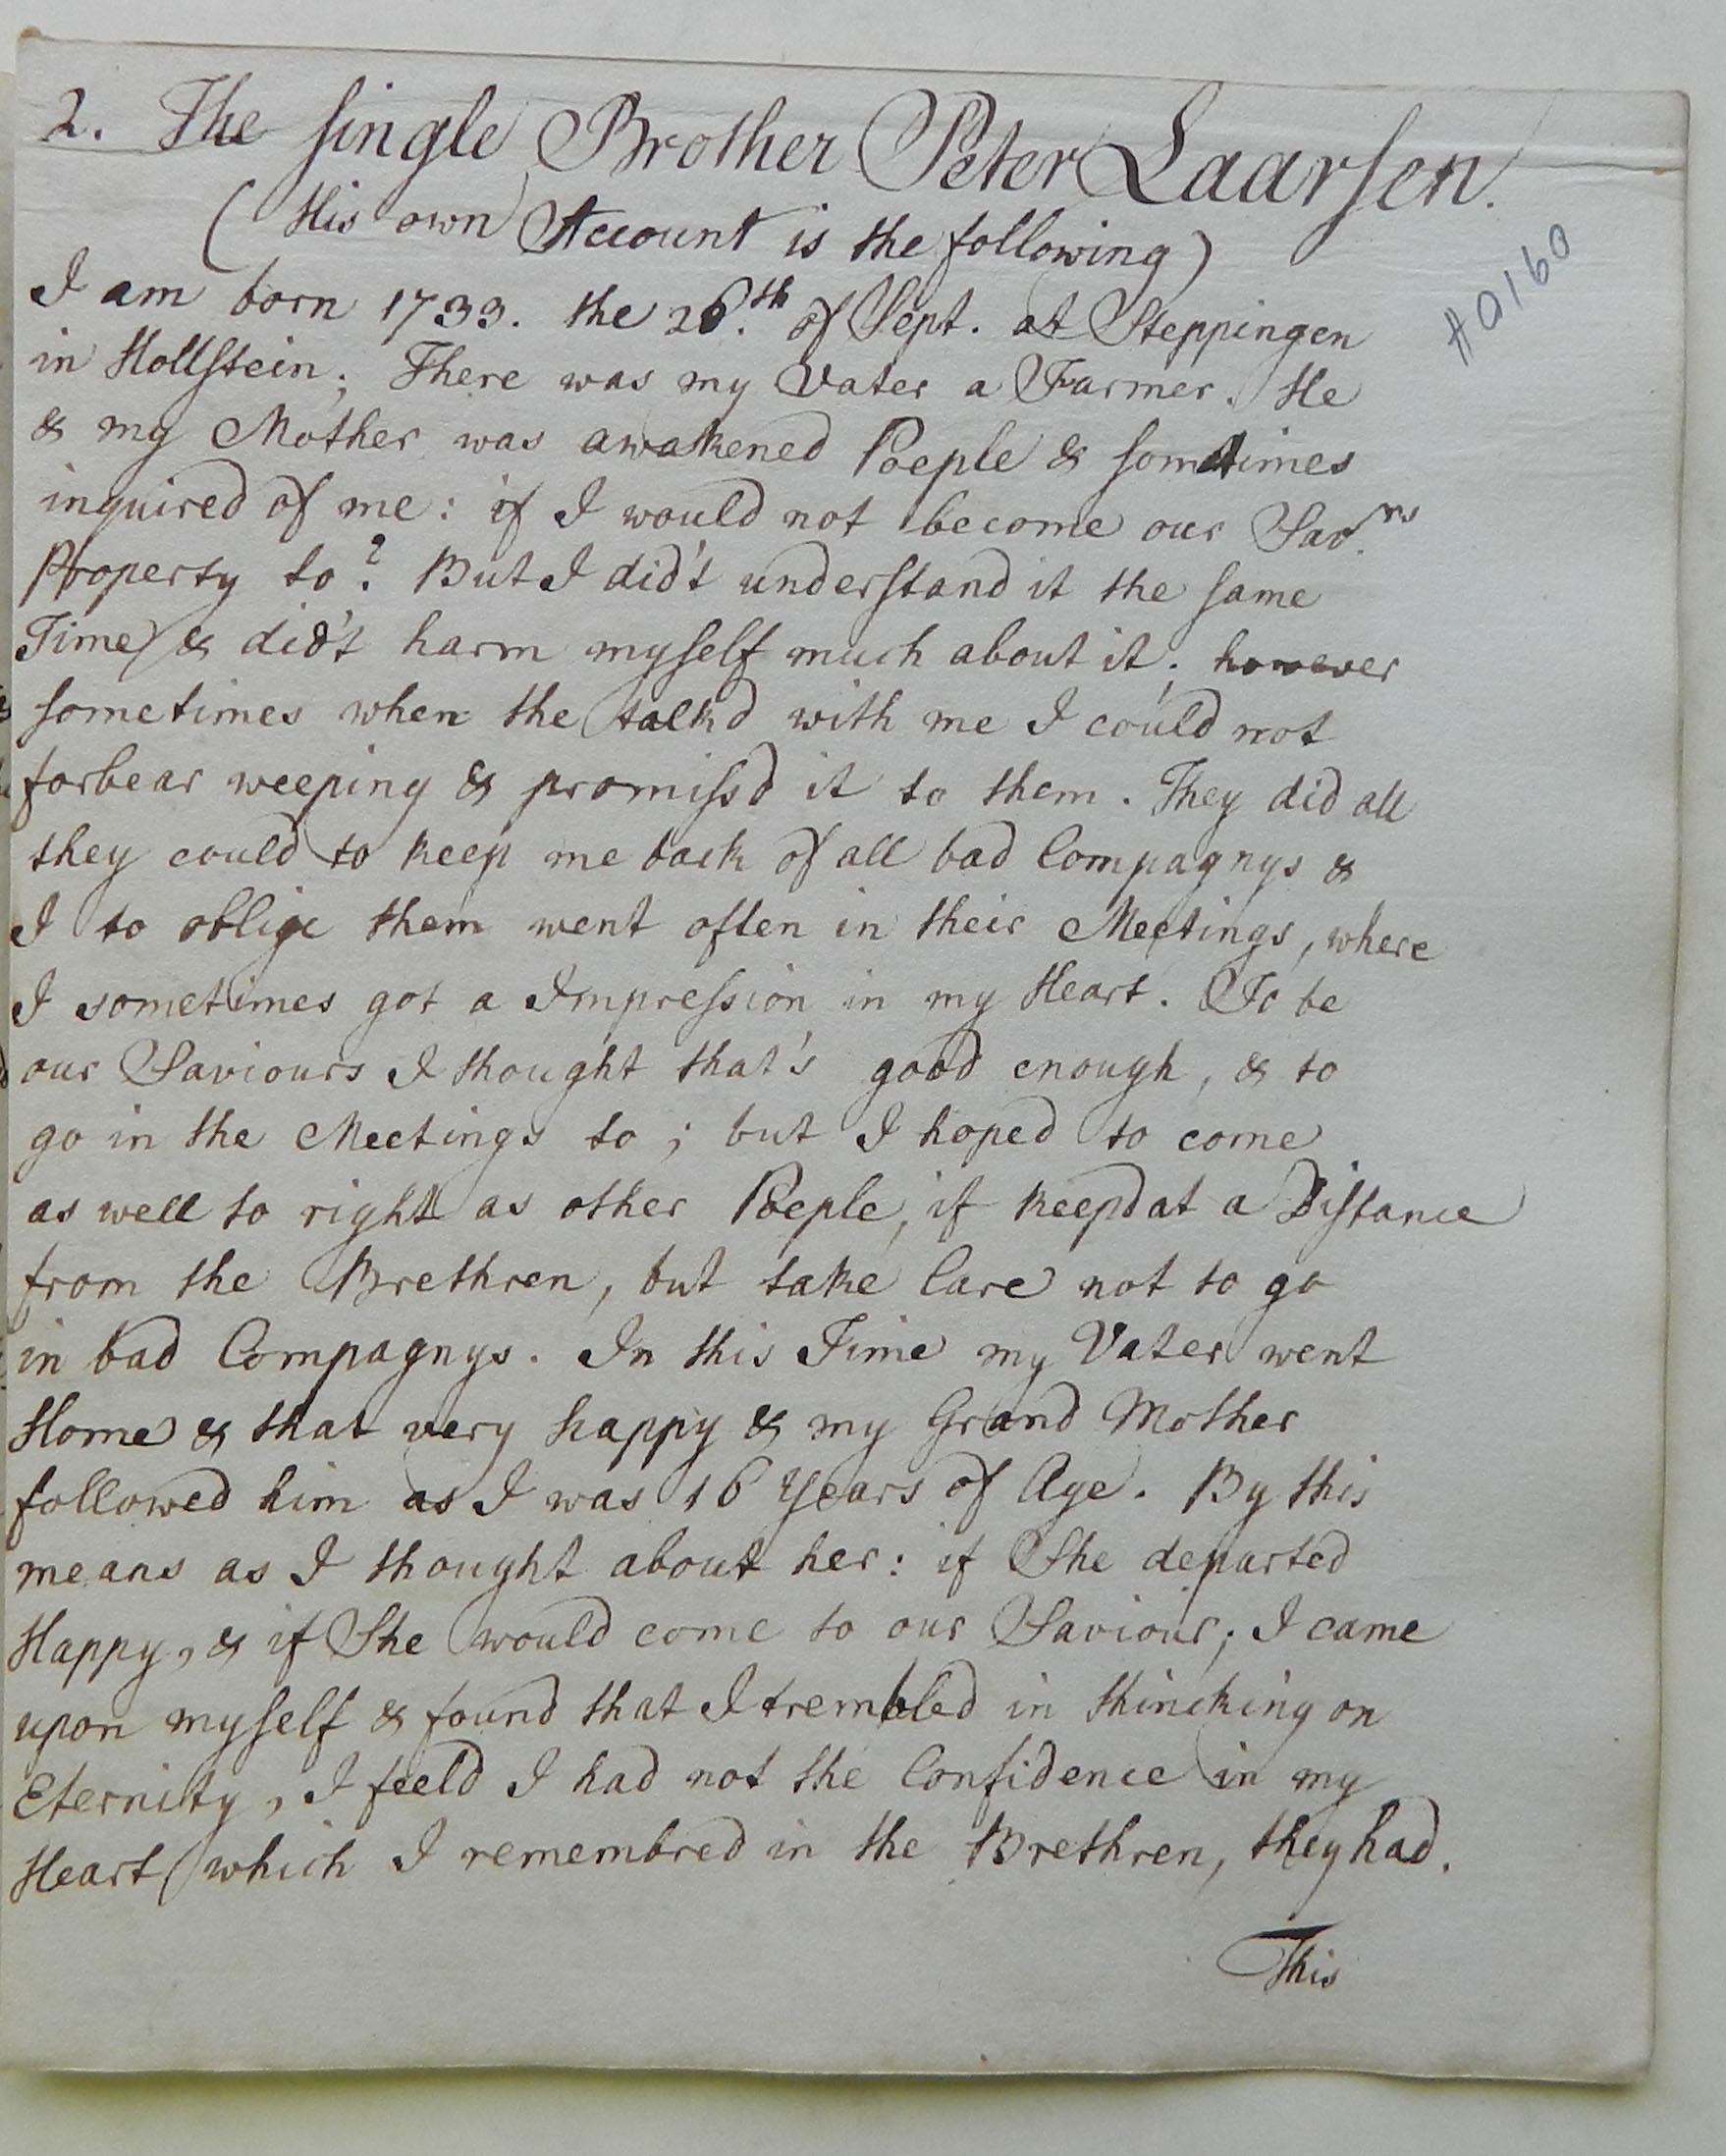 2. The single Brother Peter Laarsen.
(His own Account is the following)
#0160
I am born 1733. the 26.th of Sept. at Steppingen
in Hollstein; There was my Vater a Farmer. He
& my Mother was awakened Poeple & somtimes
inquired of me: if I would not become our Sav.rs
Property to? But I did't understand it the same
Time & did't harm myself much about it; however
sometimes when the talk'd with me I could not
forbear weeping & promiss'd it to them. They did all
they could to keep me back of all bad Compagnys &
I to oblige them went often in their Meetings, where
I sometimes got a Impression in my Heart. To be
our Saviours I thought that's good enough, & to
go in the Meetings to; but I hoped to come
as well to right as other Poeple, if keepd at a Distance
from the Brethren, but take Care not to go
in bad Compagnys. In this Time my Vater went
Home & that very happy & my Grand Mother
followed him as I was 16 Years of Age. By this
means as I thought about her: if She departed
Happy, & if She would come to our Saviour; I came
upon myself & found that I trembled in thincking on
Eternity, I feeld I had not the Confidence in my
Heart which I remembred in the Brethren, they had.
This